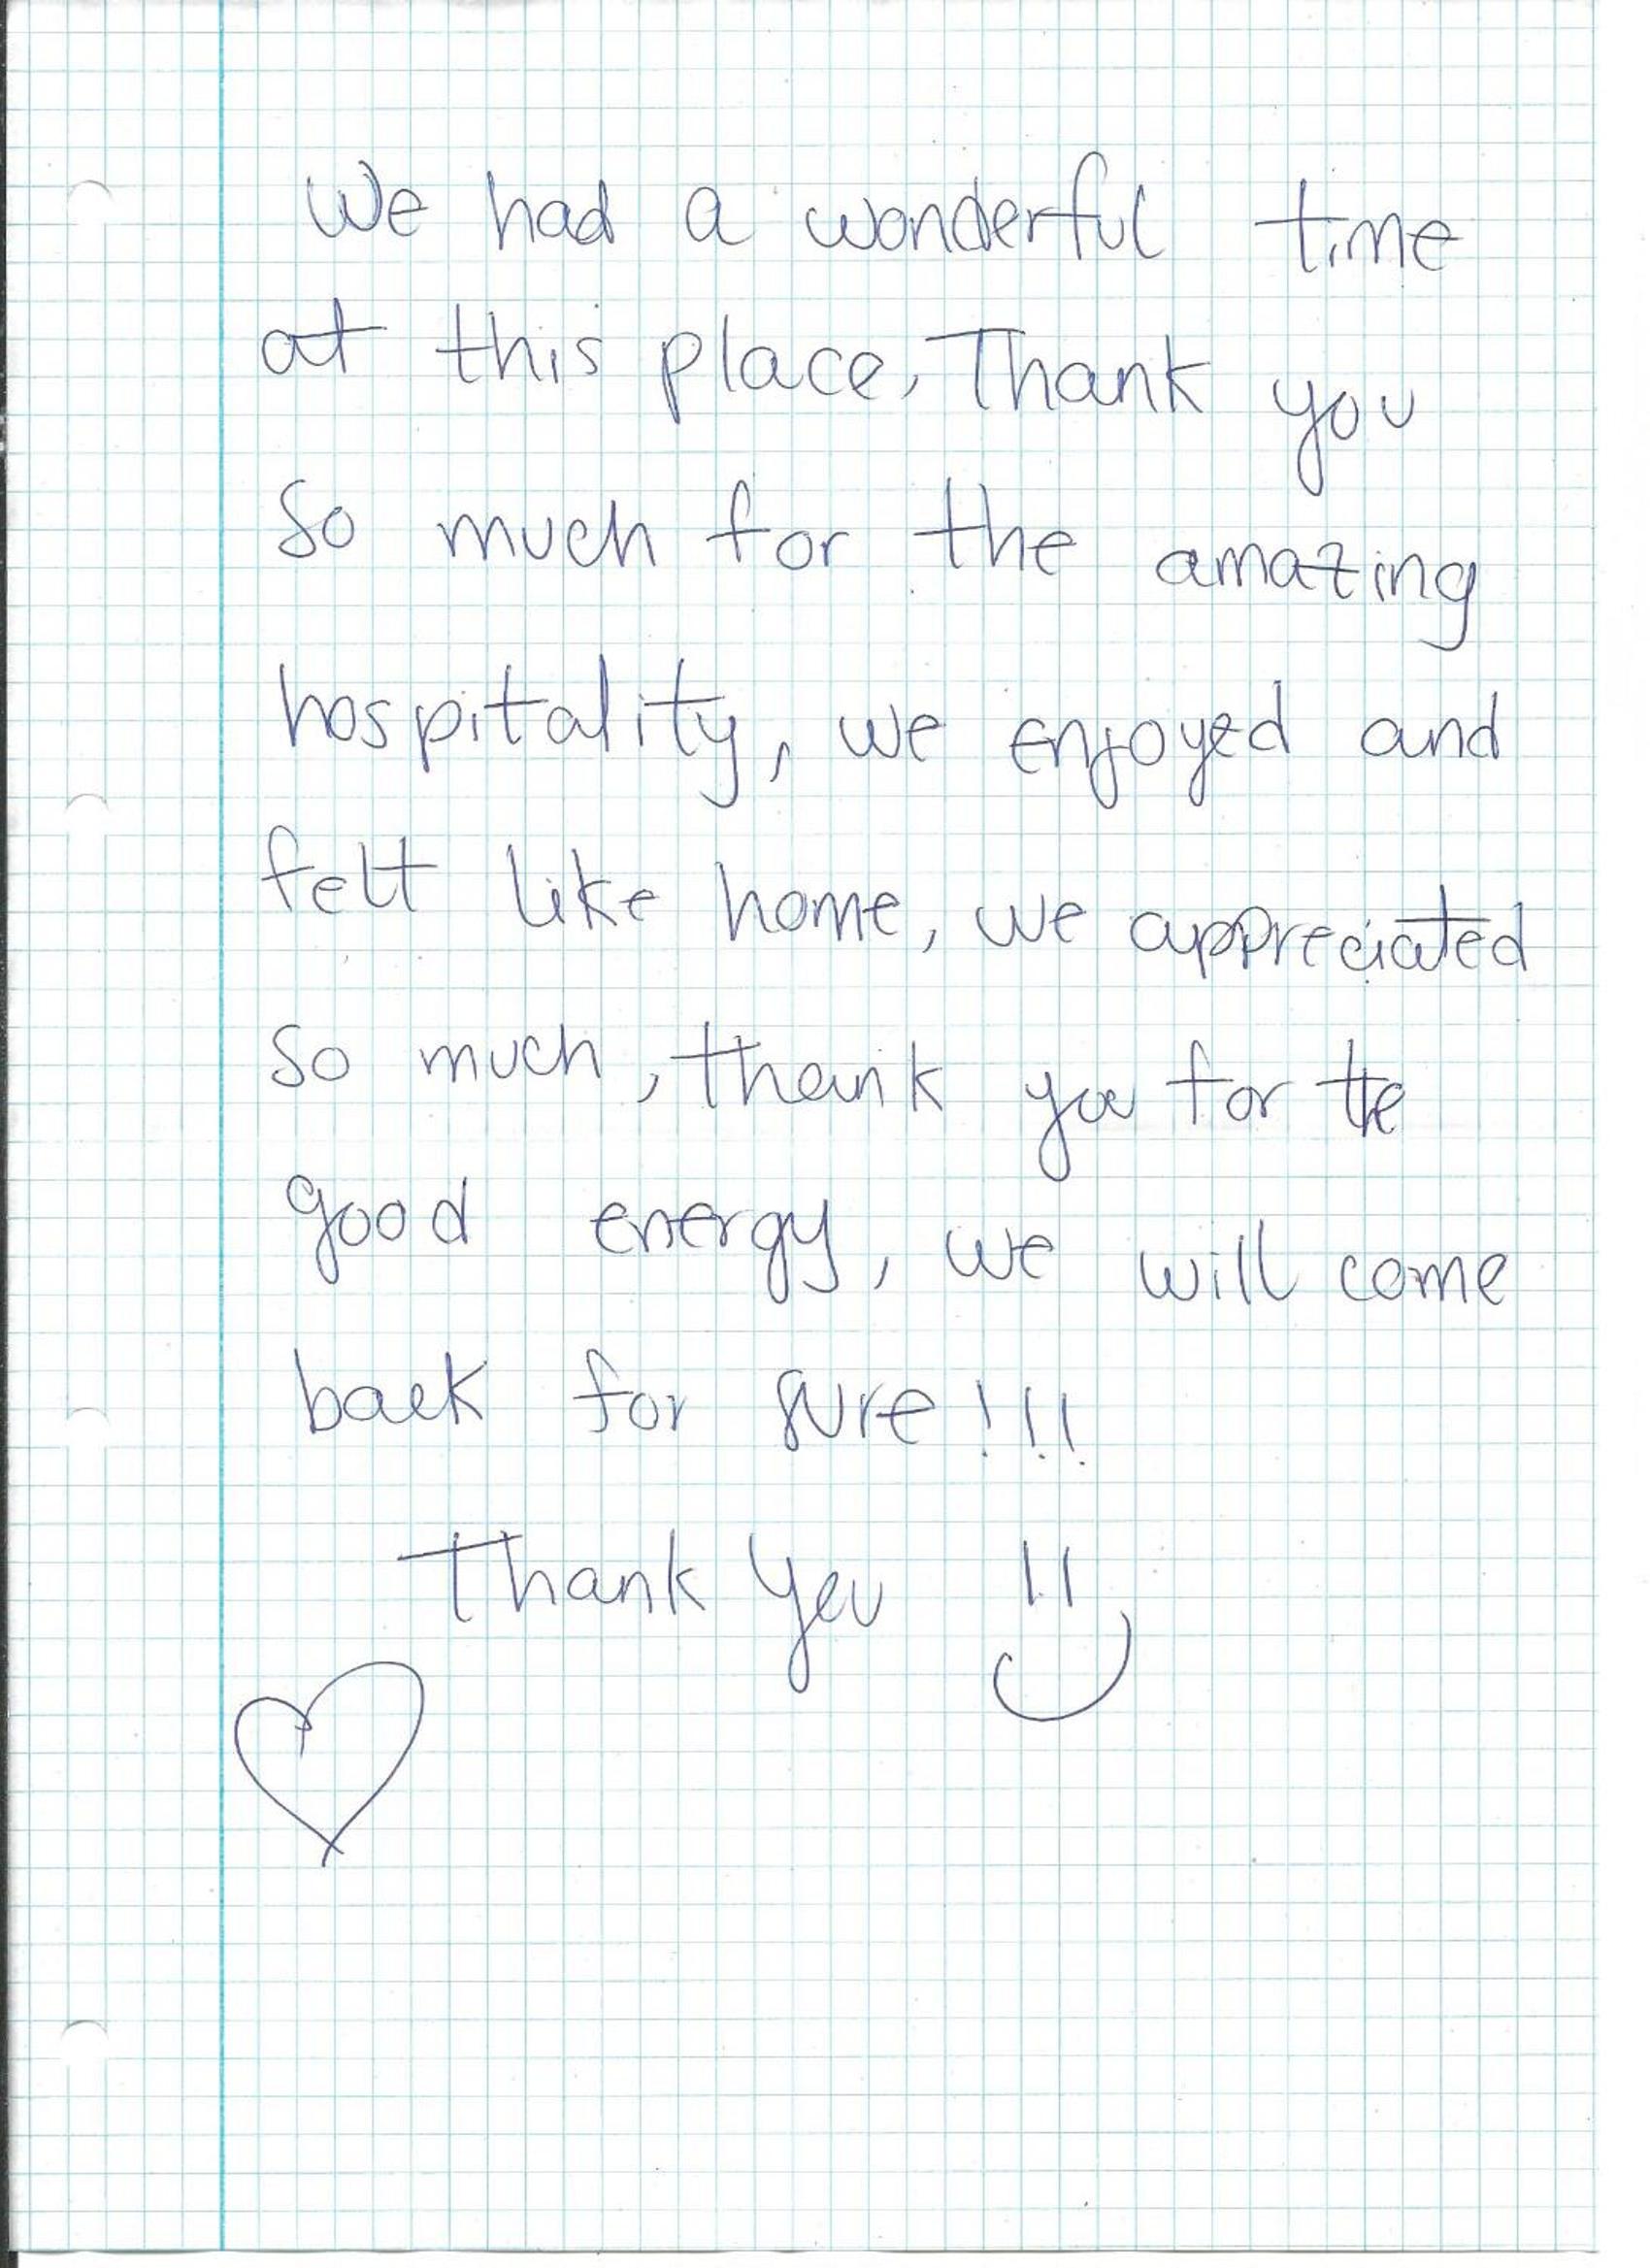 We had a wonderful time
at this place, Thank you
so much for the amazing
hospitality, we enjoyed and
felt like home, we appreciated
so much, thank you for the
good energy, we will come
back for sure!!!
Thank you !!